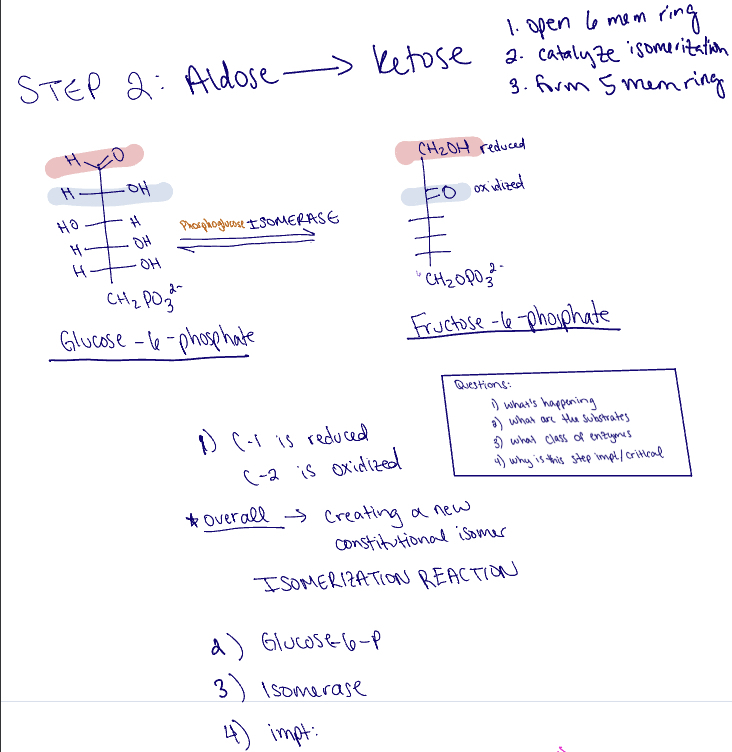 STEP 2: Aldose → Ketose
1. open 6 mem ring
2. catalyze isomerization
3. form 5 mem ring
H O
H OH
HO H
H OH
H OH
CH2PO3 2-
Glucose-6-phosphate
Phosphoglucose ISOMERASE
CH2OH reduced
O oxidized
CH2OPO3 2-
Fructose-6-phosphate
Questions:
1) what's happening
2) what are the substrates
3) what class of enzymes
4) why is this step impt/critical
1) C-1 is reduced
C-2 is oxidized
* overall → creating a new
constitutional isomer
ISOMERIZATION REACTION
2) Glucose-6-P
3) Isomerase
4) impt: